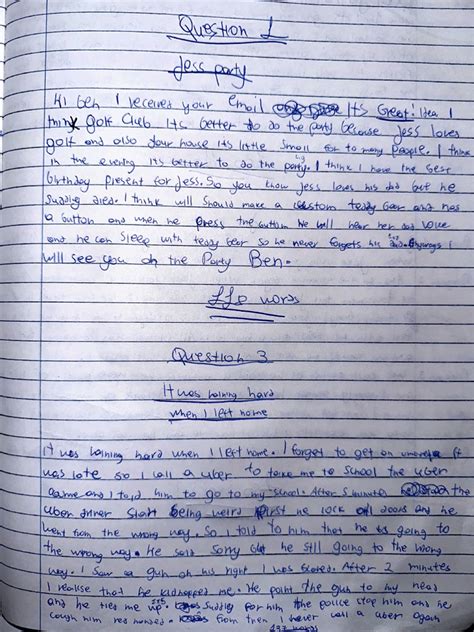 Question 1
Jess party
Hi Ben I received your email Its Great! Idea I
think Golf Club Its better to do the party because Jess loves
golf and also your house its little small for to many people. I think
in the evening its better to do the party. I think I have the best
birthday present for Jess. So you know Jess loves his dad but he
suddly died. I think will should make a custom teddy bear and has
a button and when he press the button he will hear her dad voice
and he can sleep with teddy bear so he never forgets his dad. Anyways I
will see you on the Party Ben.
words
Question 3
It was raining hard
when I left home
it was raining hard when I left home. I forget to get an It
was late so I call a uber to take me to school the uber
came and I told him to go to my school. After 5 minute the
uber driver start being weird first he lock all doors and he
went from the wrong way. So I told to him that he is going to
the wrong way. He said sorry but he still going to the wrong
way. I saw a gun on his right I was scared. After 2 minutes
I realise that he kidnapped me. He point the gun to my head
and he ties me up. suddly for him the police stop him and he
cough him red handed. From then I never call a uber again
words